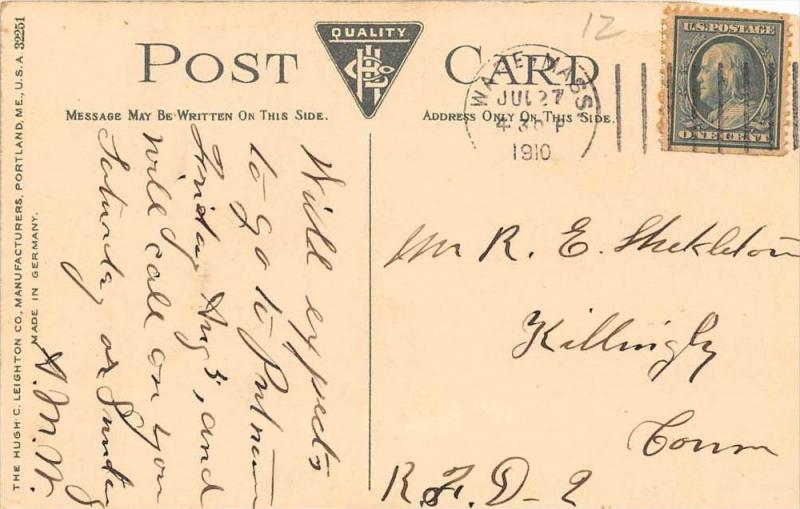 12
U.S. POSTAGE
ONE CENT
QUALITY
POST CARD
WARE MASS.
JUL 27
4 30 P
1910
MESSAGE MAY BE WRITTEN ON THIS SIDE.
ADDRESS ONLY ON THIS SIDE.
Will expects
to go to Putnam
Friday Aug 5, and
will call on you
Saturday or Sunday
Mr R. E. Shekleton
Killingly
Conn
R.F.D-2
THE HUGH C. LEIGHTON CO., MANUFACTURERS, PORTLAND, ME., U.S.A. 32251
MADE IN GERMANY.